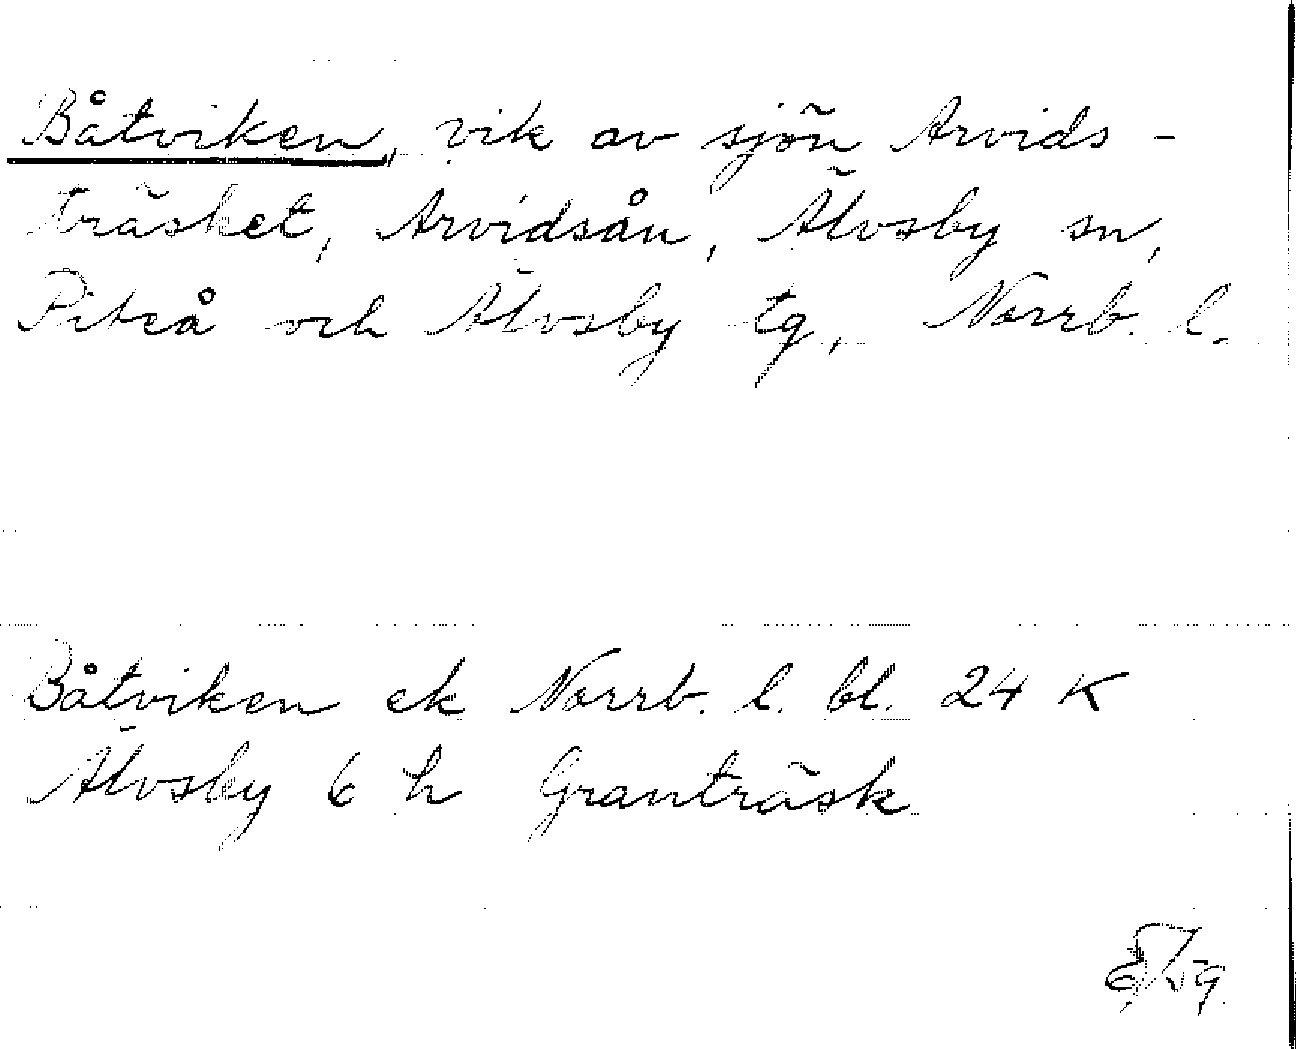 Båtviken, vik av sjön Arvids-
träsket, Arvidsån, Älvsby sn,
Piteå och Älvsby tg, Norrb. l.
Båtviken ek Norrb. l. bl. 24 K
Älvsby 6 h Granträsk